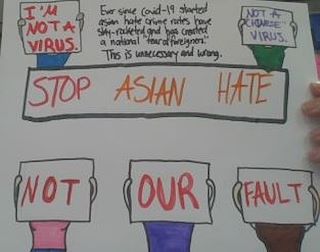 I'M
NOT A
VIRUS.
Ever since Covid-19 started
asian hate crime rates have
sky-rocketed and has created
a national "fear of foreigners."
This is unnecessary and wrong.
NOT A
"CHINESE"
VIRUS.
STOP ASIAN HATE
NOT
OUR
FAULT